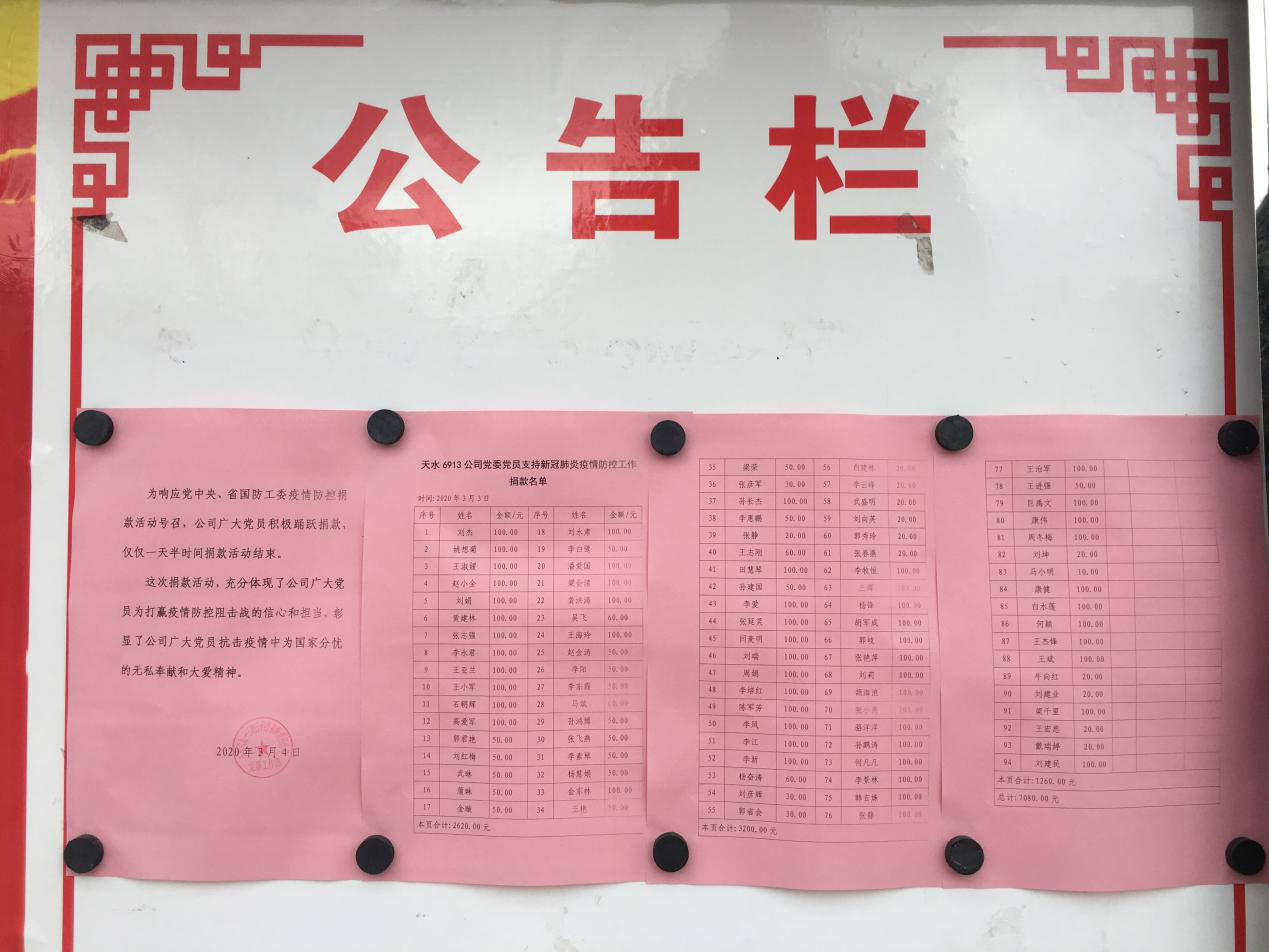 公告栏
为响应党中央、省国防工委疫情防控捐
款活动号召，公司广大党员积极踊跃捐款，
仅仅一天半时间捐款活动结束。
这次捐款活动，充分体现了公司广大党
员为打赢疫情防控阻击战的信心和担当，彰
显了公司广大党员抗击疫情中为国家分忧
的无私奉献和大爱精神。
2020年3月4日
天水6913公司党委党员支持新冠肺炎疫情防控工作
捐款名单
时间:2020年3月3日
序号 姓名 金额/元 序号 姓名 金额/元
1 刘杰 100.00 18 刘永素 100.00
2 姚想菊 100.00 19 李白鹭 50.00
3 王淑媛 100.00 20 潘爱国 100.00
4 赵小全 100.00 21 100.00
5 刘娟 100.00 22 龚洪涛 100.00
6 黄建林 100.00 23 吴飞 60.00
7 张志强 100.00 24 王海玲 100.00
8 李永君 100.00 25 赵会涛 50.00
9 王亚兰 100.00 26 李阳 50.00
10 王小军 100.00 27 李东霞 50.00
11 石朝辉 100.00 28 马斌
12 高爱军 100.00 29 孙鸿博 50.00
13 郭君艳 50.00 30 张飞燕 50.00
14 刘红梅 50.00 31 李素琴 50.00
15 武琳 50.00 32 杨慧娟 50.00
16 蒲琳 50.00 33 金东林 100.00
17 金璇 50.00 34 王艳 50.00
本页合计:2620.00元
35 梁荣 50.00 56 白建林 20.00
36 张彦军 30.00 57 李云峰 20.00
37 孙长杰 100.00 58 武盛明 20.00
38 李惠鹏 50.00 59 刘向英 20.00
39 张静 20.00 60 郭秀玲 20.00
40 王志刚 60.00 61 张春燕 20.00
41 田慧琴 100.00 62 李牧恒 100.00
42 孙建国 50.00 63 100.00
43 李爱 100.00 64 杨锋 100.00
44 张延灵 100.00 65 胡军成 100.00
45 闫麦明 100.00 66 郭岐 100.00
46 刘瑞 100.00 67 张艳萍 100.00
47 周娟 100.00 68 刘莉 100.00
48 李培红 100.00 69 颉海浪 100.00
49 陈军芳 100.00 70 张小燕 100.00
50 李凤 100.00 71 骆洋洋 100.00
51 李江 100.00 72 孙鹏涛 100.00
52 李新 100.00 73 何凡凡 100.00
53 杨奋涛 60.00 74 李景林 100.00
54 刘彦辉 30.00 75 韩玄姝 100.00
55 郭省会 30.00 76 张静 100.00
本页合计:3200.00元
77 王治军 100.00
78 王进强 50.00
79 巨禹文 100.00
80 康伟 100.00
81 周冬梅 100.00
82 刘坤 20.00
83 马小明 10.00
84 康健 100.00
85 白水莲 100.00
86 何颖 100.00
87 王杰锋 100.00
88 王斌 100.00
89 牛向红 20.00
90 刘建业 20.00
91 梁千里 100.00
92 王宏思 20.00
93 戴瑞婷 20.00
94 刘建民 100.00
本页合计:1260.00元
总计:7080.00元